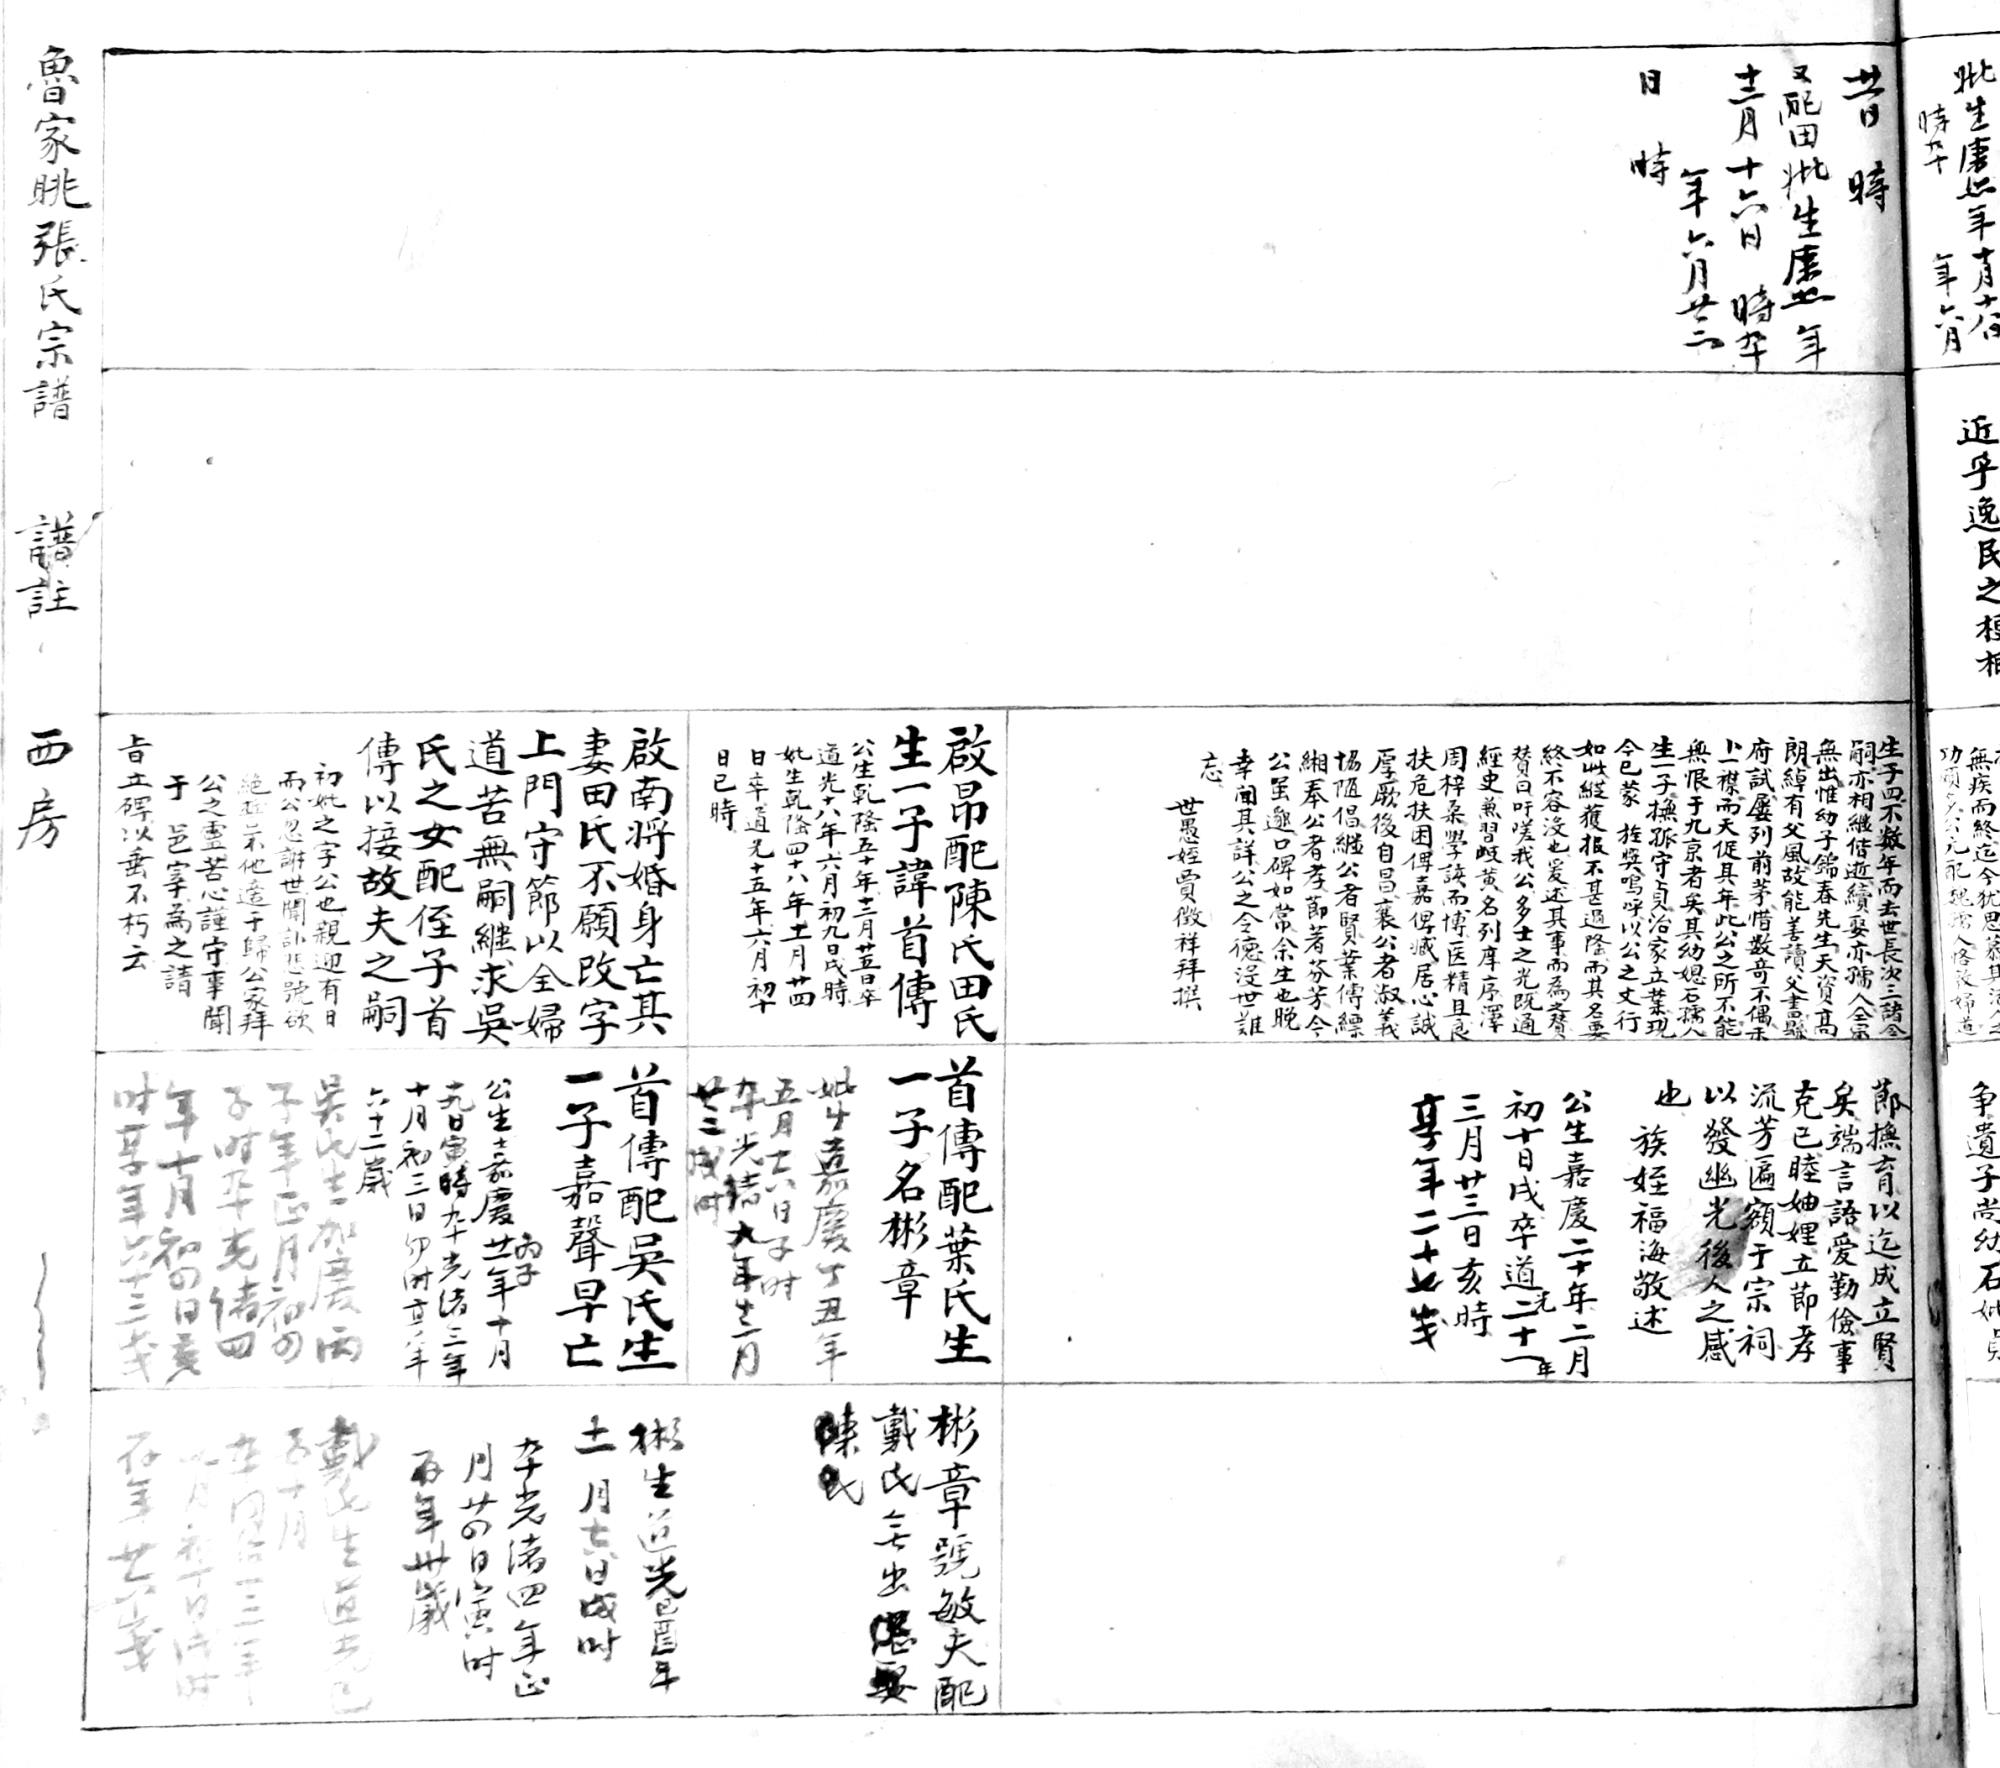 廿日　時
又配田妣生康熙　年
十二月十六日　時卒
年六月廿二
日　時
生子四不数年而去世長次三諸令
嗣亦相継偕逝續娶亦孺人全
無出惟幼子錦春先生天資高
朗綽有父風故能善讀父書縣
府試屡列前茅惜数竒不偶未
卜一襟而天促其年此公之所不能
無恨于九京者矣其幼媳石孺人
生一子撫孤守貞治家立業現
今已蒙　旌奬嗚呼以公之文行
如此縦獲报不甚過隆而其名要
終不容没也爰述其事而為之賛
賛曰吁嗟我公多士之光既通
經史兼習岐黄名列庠序澤
周梓桑學該而博医精且良
扶危扶困俾嘉俾臧居心誠
厚厥後自昌襄公者淑義
協隨倡継公者賢葉傳縹
緗奉公者孝節著芬芳今
公虽邈口碑如常余生也晚
幸聞其詳公之令德没世誰
忘
世愚姪賈徴祥拜撰
啟昂配陳氏田氏
生一子諱首傳
公生乾隆五十年十二月廿五日卒
道光十八年六月初九日戌時
妣生乾隆四十八年十一月廿四
日卒道光十五年六月初十
日已時
啟南将婚身亡其
妻田氏不願改字
上門守節以全婦
道苦無嗣継求吳
氏之女配侄子首
傳以接故夫之嗣
初妣之字公也親迎有日
而公忽謝世聞訃悲號欲
絶矢不他適于歸公家拜
公之靈苦心謹守事聞
于　邑宰為之請
旨立碑以垂不朽云
節撫育以迄成立賢
矣端言語愛勤儉事
克已睦妯娌立節孝
流芳匾額于宗祠
以發幽光後人之感
也　族姪福海敬述
公生嘉慶二十年二月
初十日戌卒道光二十一年
三月廿三日亥時
享年二十七歲
首傳配葉氏生
一子名彬章
妣生嘉慶丁丑年
五月十六日子时
卒光緒九年十二月
廿二戌时
首傳配吳氏生
一子嘉聲早亡
公生嘉慶廿一年丙子十月
十九日寅時卒光緒三年
十月初三日卯时享年
六十二歲
吳氏生加慶丙
子年正月初四
子时卒光緒四
年十月初四日亥
时享年六十三歲
彬章號敏夫配
戴氏無出继娶
陳氏
彬生道光已酉年
十一月十六日戌时
卒光緒四年正
月廿四日寅时
存年卅歲
戴氏生道光已
酉十月
卒同治十三年
月初十日戌时
存年廿六歲
魯家眺張氏宗譜　譜註　西房
妣生康熙　年十月十八日
時卒　年六月
近乎逸民之
無疾而終迄今犹思慕其
争遺子尚幼石妣